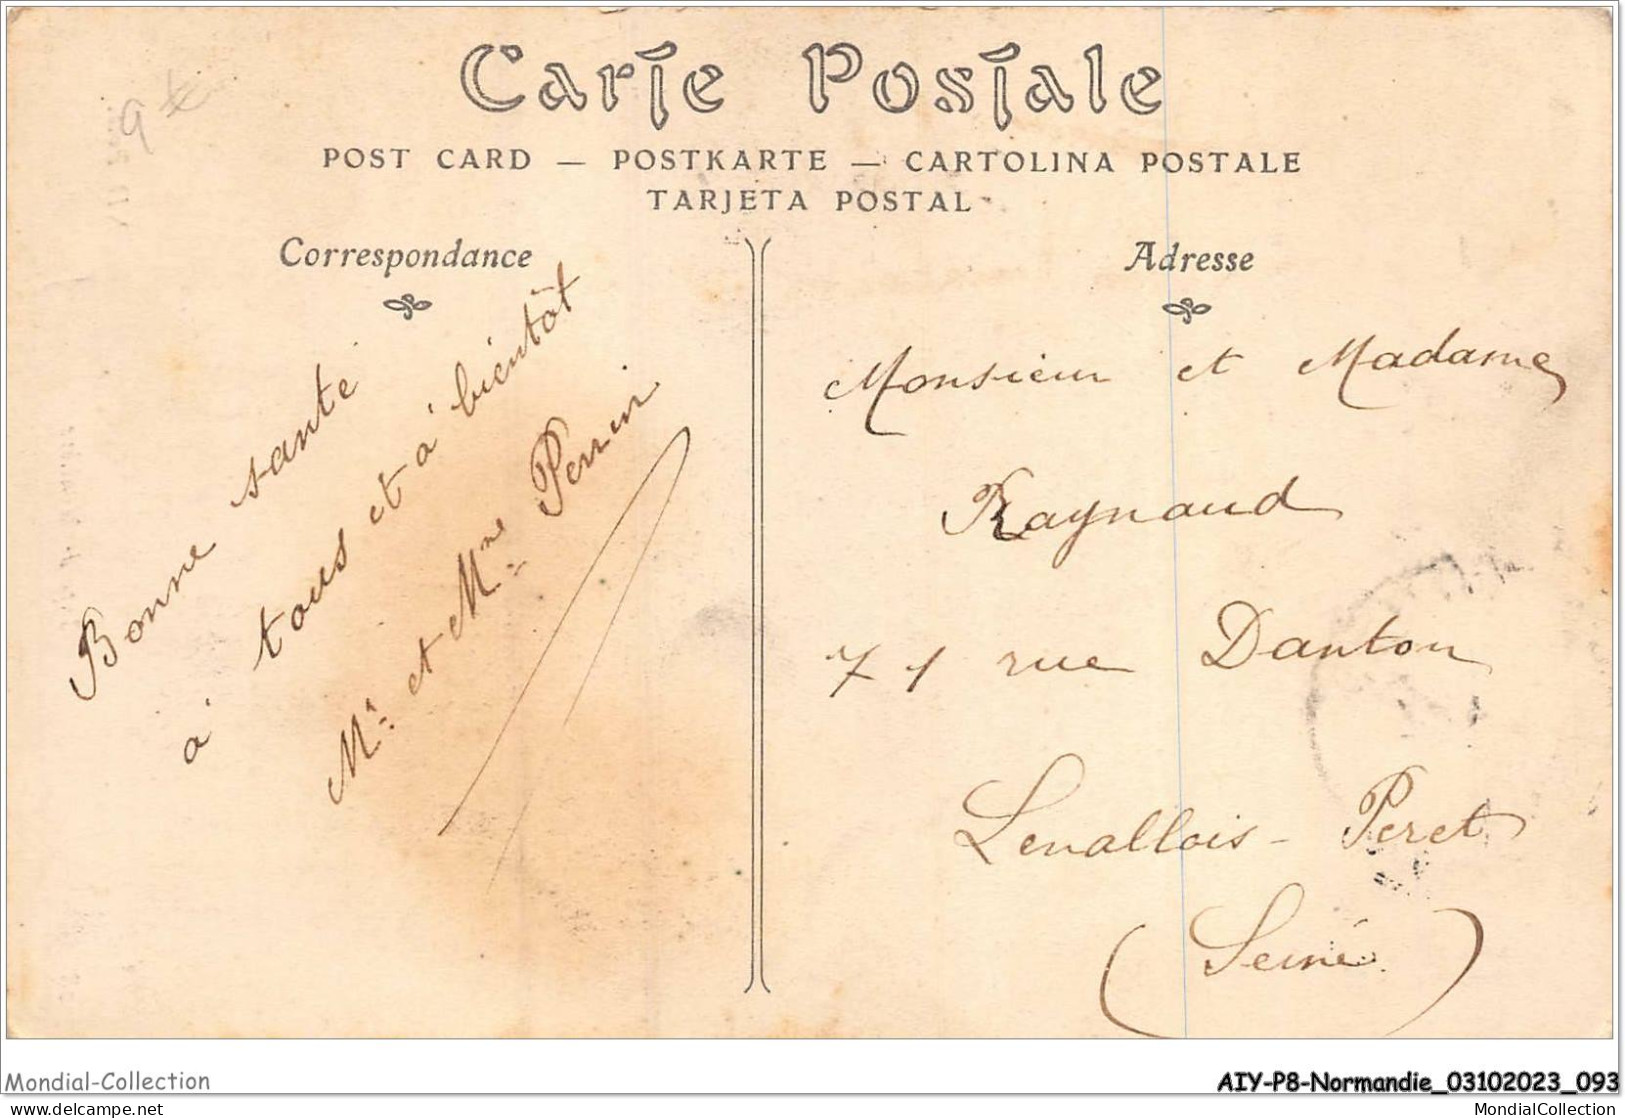 Carte Postale
POST CARD — POSTKARTE — CARTOLINA POSTALE
TARJETA POSTAL
Correspondance
Bonne santé
à tous et à bientôt
Mr et Mme Perrin
Adresse
Monsieur et Madame
Raynaud
71 rue Danton
Levallois - Peret
(Seine)
Mondial-Collection
AIY-P8-Normandie_03102023_093
delcampe.net
MondialCollection